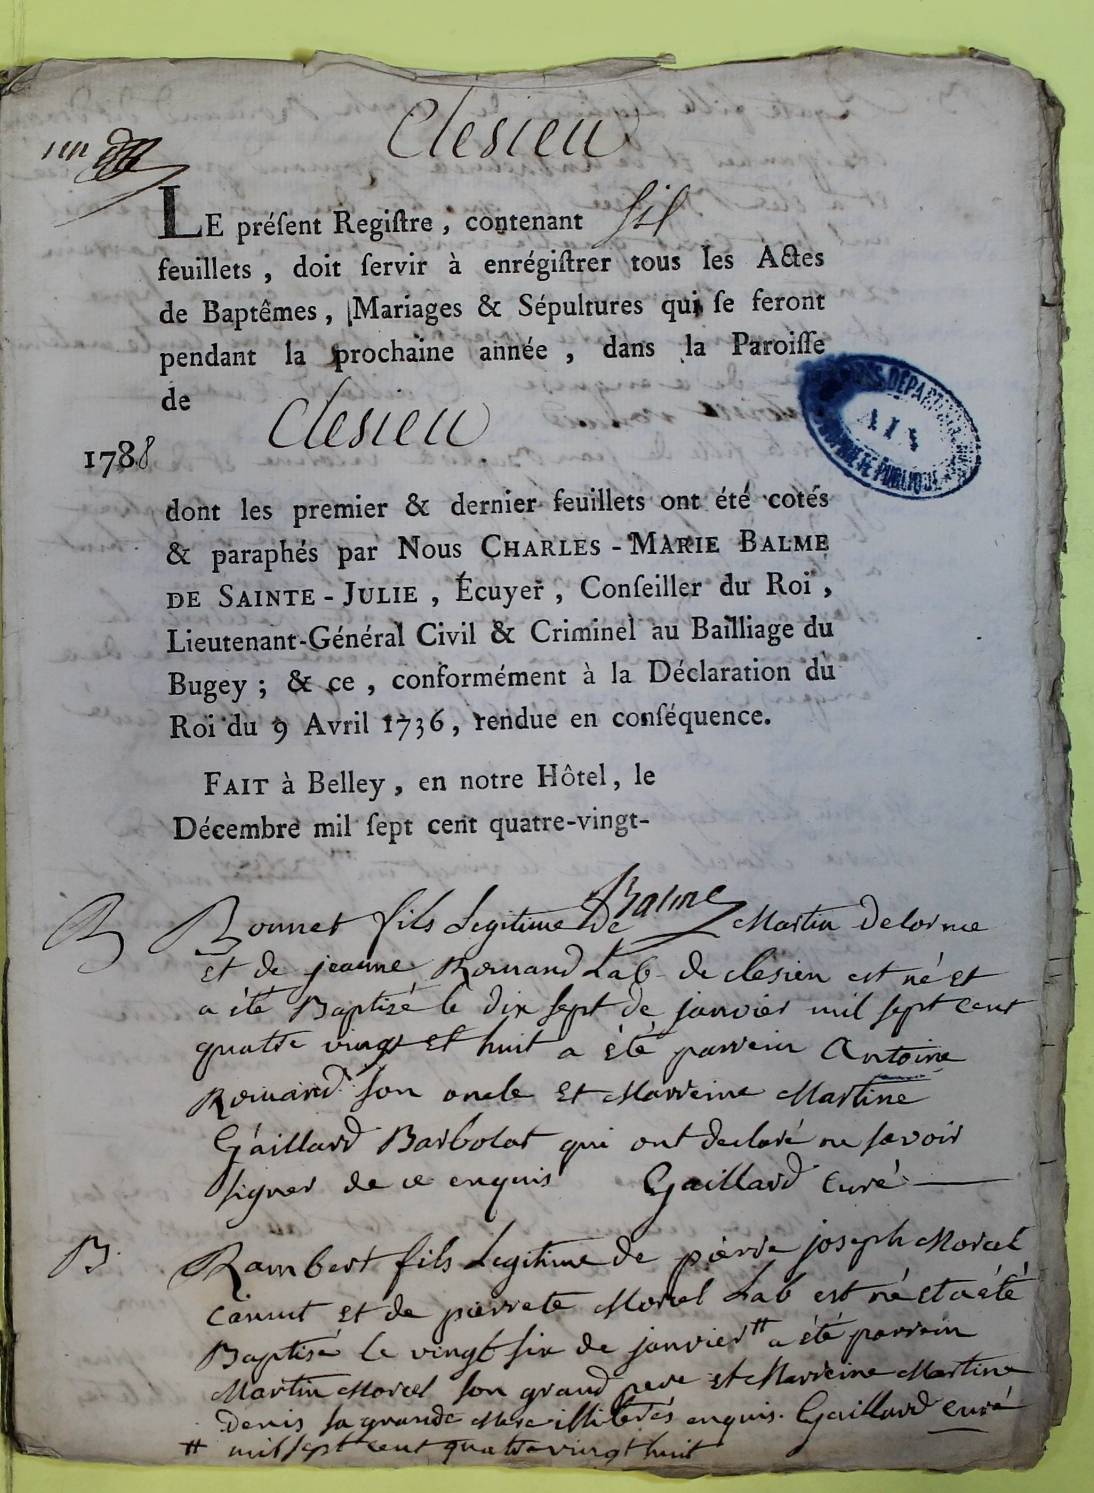 Clesieu
LE préſent Regiſtre, contenant six
feuillets, doit ſervir à enrégiſtrer tous les Actes
de Baptêmes, Mariages & Sépultures qui ſe feront
pendant la prochaine année, dans la Paroiſſe
de Clesieu
1788
dont les premier & dernier feuillets ont été cotés
& paraphés par Nous CHARLES-MARIE BALME
DE SAINTE-JULIE, Écuyer, Conſeiller du Roi,
Lieutenant-Général Civil & Criminel au Bailliage du
Bugey; & ce, conformément à la Déclaration du
Roi du 9 Avril 1736, rendue en conſéquence.
FAIT à Belley, en notre Hôtel, le
Décembre mil ſept cent quatre-vingt-
Balme
B Bonnet fils Legitime de Martin Delorme
et de jeanne Romand Lab. de clesieu est né et
a été Baptisé le dix sept de janvier mil sept cent
quatre vingt et huit a été parrein Antoine
Romand son oncle et Marreine Martine
Gaillard Barbolat qui ont declaré ne savoir
signer de ce enquis Gaillard curé
B. Rambert fils Legitime de pierre joseph Morcel
et de pierrete Morel Lab est né et a été
Baptisé le vingt six de janvier # a été parrein
Martin Morcel son grand pere et Marreine Martine
denis sa grande Mere illiterés enquis. Gaillard curé
# mil sept cent quatre vingt huit